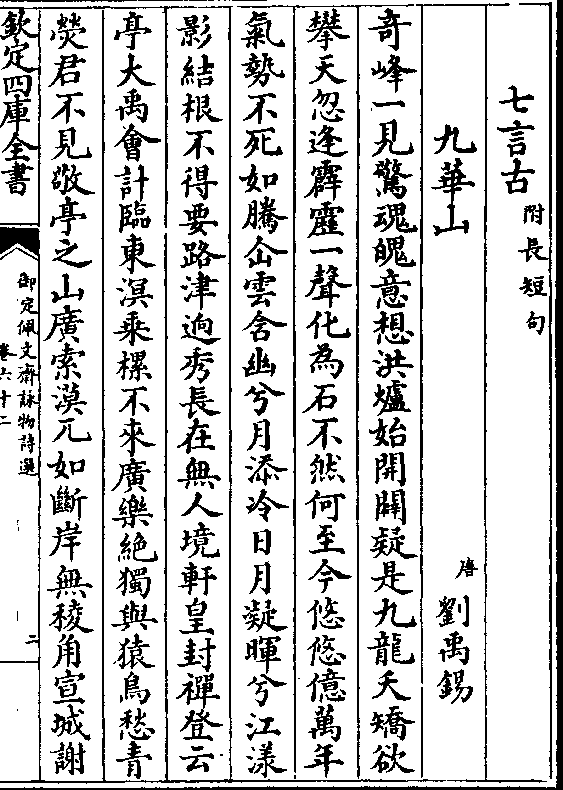 七言古附長短句
九華山
唐劉禹錫
奇峰一見驚魂魄意想洪爐始開闢疑是九龍夭矯欲
攀天忽逢霹靂一聲化為石不然何至今悠悠億萬年
氣勢不死如騰屳雲含幽兮月添冷日月凝暉兮江漾
影結根不得要路津逈秀長在無人境軒皇封禪登云
亭大禹會計臨東溟乘樏不來廣樂絶獨與猿鳥愁青
熒君不見敬亭之山廣索漠兀如斷岸無稜角宣城謝
欽定四庫全書
御定佩文齋詠物詩選
卷六十二
二